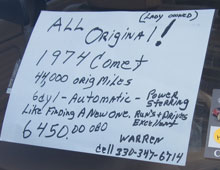 (LADY OWNED)
ALL
ORIGINAL!!
1974 Comet
44,000 ORIG Miles
6cyl - AUTOMATIC - POWER STERRING
Like Finding A New One. RUN'S + DRIVES EXCELLENT
6450.00 OBO
WARREN
Cell 330-347-6714